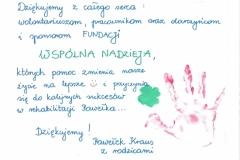 Dziękujemy z całego serca :
wolontariuszom, pracownikom oraz darczyńcom
i sponsorom FUNDACJI
WSPÓLNA NADZIEJA,
których pomoc zmienia nasze
życie na lepsze i przyczynia
się do kolejnych sukcesów
w rehabilitacji Pawełka...
Dziękujemy!
Pawełek Kraus
z rodzicami